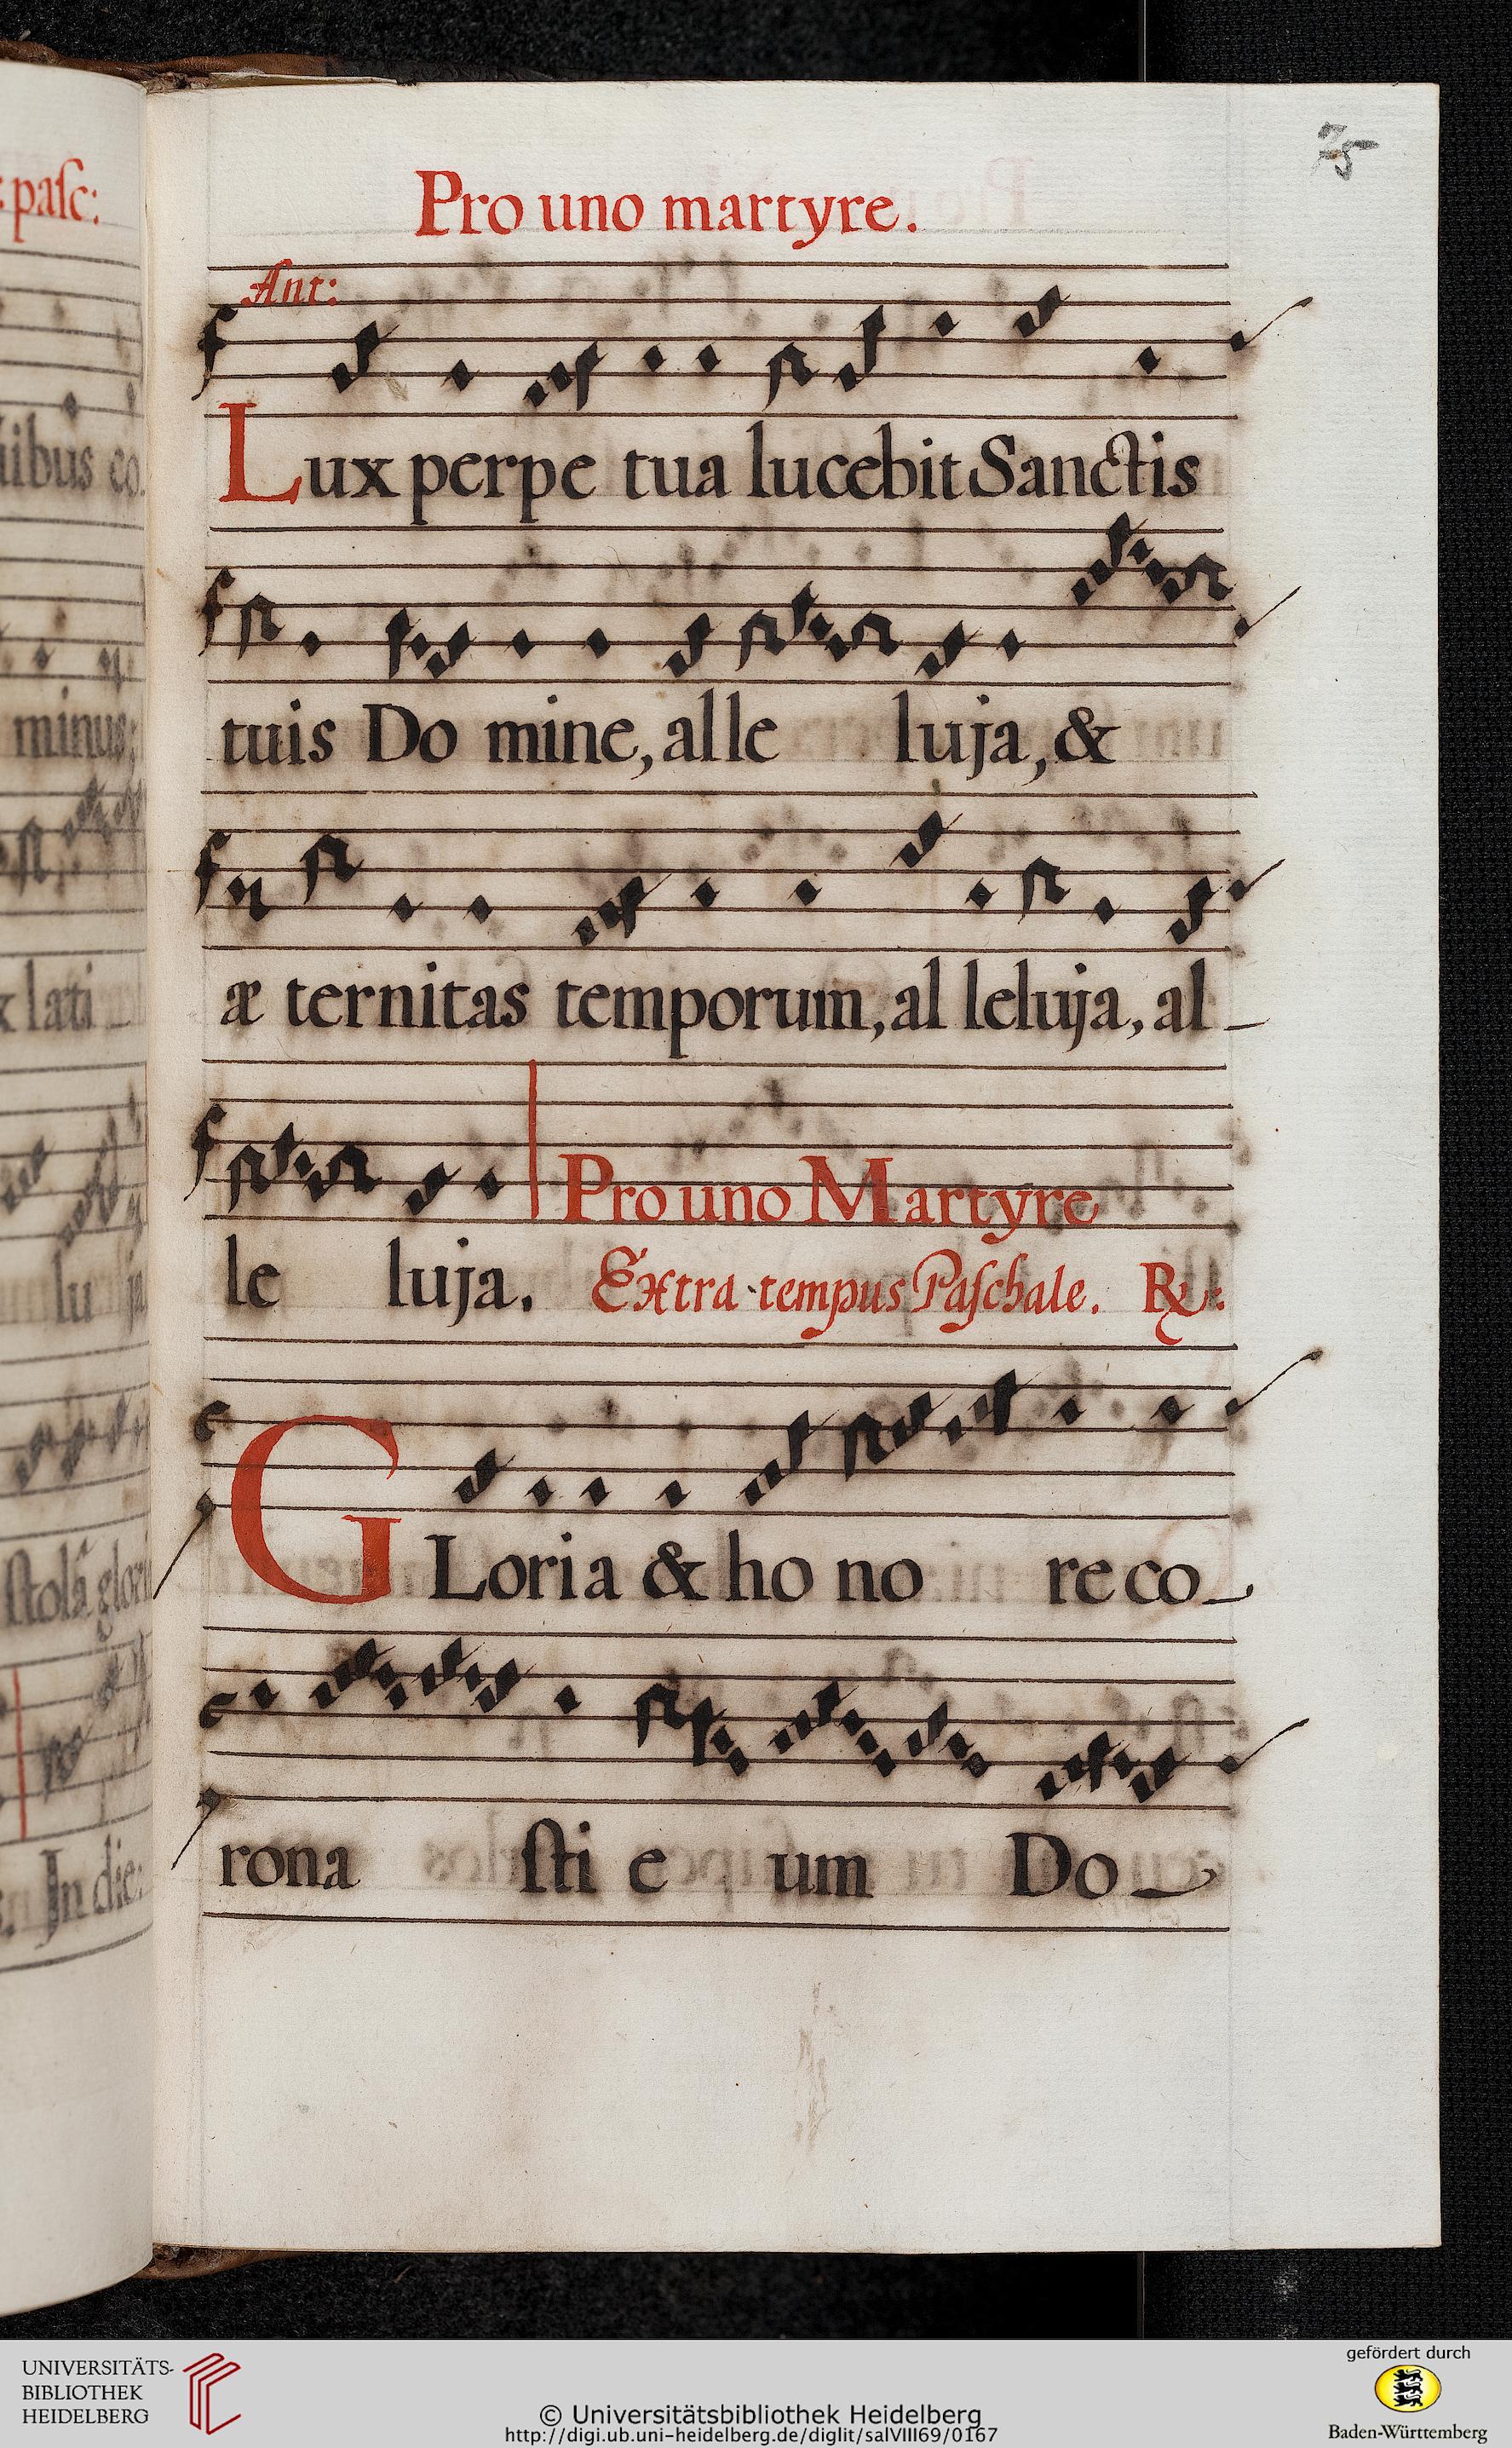 : pasc:
75
Pro uno martyre.
Ant:
Lux perpe tua lucebit Sanctis
tuis Do mine, alle luja, &
æ ternitas temporum, al leluja, al_
le luja. Pro uno Martyre
Extra tempus Paschale. ℟:
GLoria & ho no re co_
rona sti e um Do_
ibus co
minus;
lati_
lu ja
stolã glori
In die:
UNIVERSITÄTS-
BIBLIOTHEK
HEIDELBERG
© Universitätsbibliothek Heidelberg
http://digi.ub.uni-heidelberg.de/diglit/salVIII69/0167
gefördert durch
Baden-Württemberg